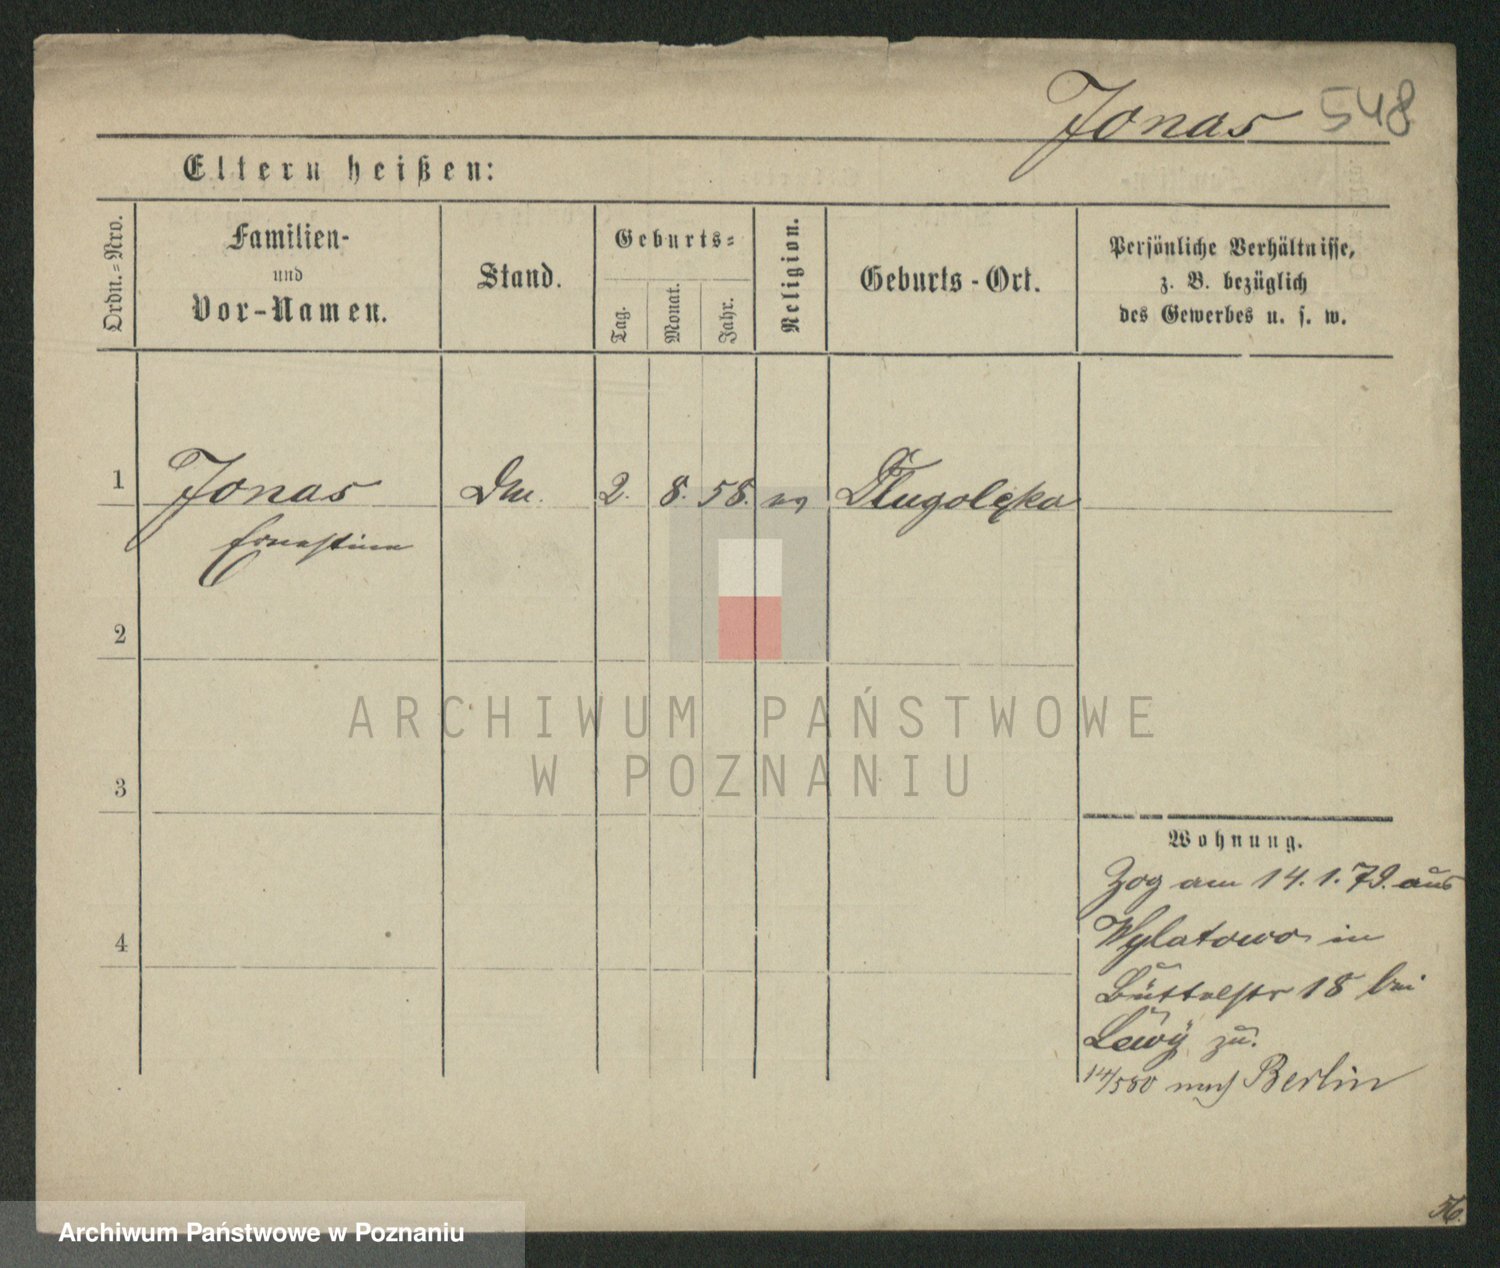 Jonas 548
Eltern heißen:
Ordn.-Nro.
Familien-
und
Vor-Namen.
Stand.
Geburts-
Tag.
Monat.
Jahr.
Religion.
Geburts-Ort.
Persönliche Verhältnisse,
z. B. bezüglich
des Gewerbes u. s. w.
1
Jonas
2. 8. 58.
Długolęka
Ernestine
2
ARCHIWUM PAŃSTWOWE
W POZNANIU
3
Wohnung.
Zog am 14.1.79. aus
4
Wylatowo in
Büttelstr 18 bei
Lewÿ zu.
14/5 80 nach Berlin
56.
Archiwum Państwowe w Poznaniu